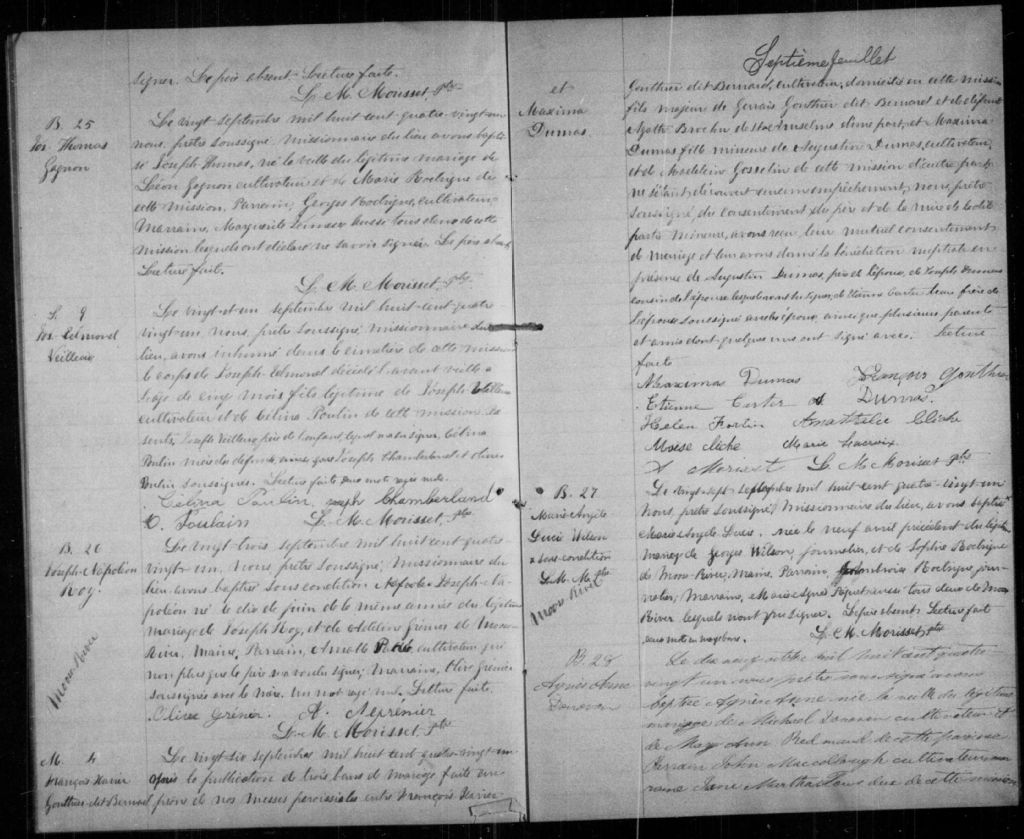 signer. Le père absent. Lecture faite.
L. M. Morisset, Ptre
B. 25
Jos. Thomas
Gagnon
Le vingt septembre mil huit cent quatre-vingt-un
nous, prêtre soussigné, missionnaire du lieu avons bapti-
sé Joseph Thomas, né la veille du légitime mariage de
Léon Gagnon cultivateur et de Marie Rodrigue de
cette mission. Parrain, Georges Rodrigue, cultivateur,
Marraine, Marguerite aussi tous deux de cette
mission lesquels ont déclaré ne savoir signer. Le père absent
Lecture faite.
L. M. Morisset, Ptre
S. 9
Jos. Edmond
Veilleux
Le vingt-et-un septembre mil huit-cent-quatre
vingt-un nous, prêtre soussigné missionnaire du
lieu, avons inhumé dans le cimetière de cette mission
le corps de Joseph Edmond décédé l'avant veille à
l'age de cinq mois fils légitime de Joseph Veilleux
cultivateur et de Célina Poulin de cette mission. Pré-
sents, Joseph Veilleux, père de l'enfant, lequel n'a su signer, Célina
Poulin mère du défunt, ainsi que Joseph Chamberland et
Poulin soussignés. Lecture faite deux mots rayés nuls.
Célina Poulin, Joseph Chamberland
O. Poulain L. M. Morisset, Ptre
B. 26
Joseph-Napoléon
Roy.
Moose River
Le vingt-trois septembre mil huit cent quatre-
vingt-un, Nous, prêtre soussigné, Missionnaire du
lieu avons baptisé sous condition Joseph-Na-
poléon né le dix de juin de la même année du légitime
mariage de Joseph Roy, et de Adeline Grenier de Moose
River, Maine, Parrain, cultivateur qui
non plus que le père n'a voulu signer; Marraine, Olive Grenier
soussignée avec le Un mot rayé nul. Lecture faite.
Olive Grénier. A.
L. M. Morisset, Ptre
M. 4
François Xavier
Gonthier dit Bernard
Le vingt-six septembre mil huit cent quatre-vingt-un
après la publication de trois bans de mariage faite aux
prônes de nos messes paroissiales entre François Xavier
Septième feuillet
et
Maxima
Dumas.
Gonthier dit Bernard, cultivateur, domicilié en cette mission
fils majeur de Gervais Gonthier dit Bernard et de défunte
Agathe Brochu de St Anselme d'une part, et Maxima
Dumas fille mineure de Augustin Dumas, cultivateur,
et de Madeleine Gosselin de cette mission d'autre part
ne s'étant découvert aucun empêchement, nous, prêtre
soussigné, du consentement du père et de la mère de la dite
partie mineure, avons reçu leur mutuel consentement
de mariage et leur avons donné la bénédiction nuptiale en
présence de Augustin Dumas, père de l'épouse, de Joseph Dumas
cousin de l'épouse lesquels n'ont su signer, de Etienne Cartier beau frère de
l'épouse soussigné avec les époux ainsi que plusieurs parents
et amis dont quelques uns ont signé avec. Lecture
faite
Maximas Dumas François Gonthier
Etienne Carter A Dumas.
Helen Fortin Anathalie Cliche
Moise Cliche Marie Lacroix
A L. M. Morisset Ptre
B. 27
Marie Angèle
Lucie Wilson
sous condition
L. M. M. Ptre
Moose River
Le vingt-sept septembre mil huit cent quatre-vingt-un
Nous, prêtre soussigné, missionnaire du lieu, avons baptisé
Marie Angèle Lucie. née le neuf avril précédent du légitime
mariage de Georges Wilson, journalier, et de Sophie Rodrigue
de Moose River, Maine, Parrain, Ambroise Rodrigue, jour-
nalier; Marraine, Marie Agnès Paquet aussi tous deux de Moose
River lesquels n'ont pu signer. Le père absent. Lecture faite
L. M. Morisset Ptre
B. 28
Agnès Anne
Donovan
Le dix neuf octobre mil huit cent quatre
vingt un nous prêtre soussigné avons
baptisé Agnès Anne née la veille du légitime
mariage de Michael Donovan cultivateur et
de Mary Ann Redmond de cette paroisse
Parrain John cultivateur mar-
raine Jane Murtha tous deux de cette mission